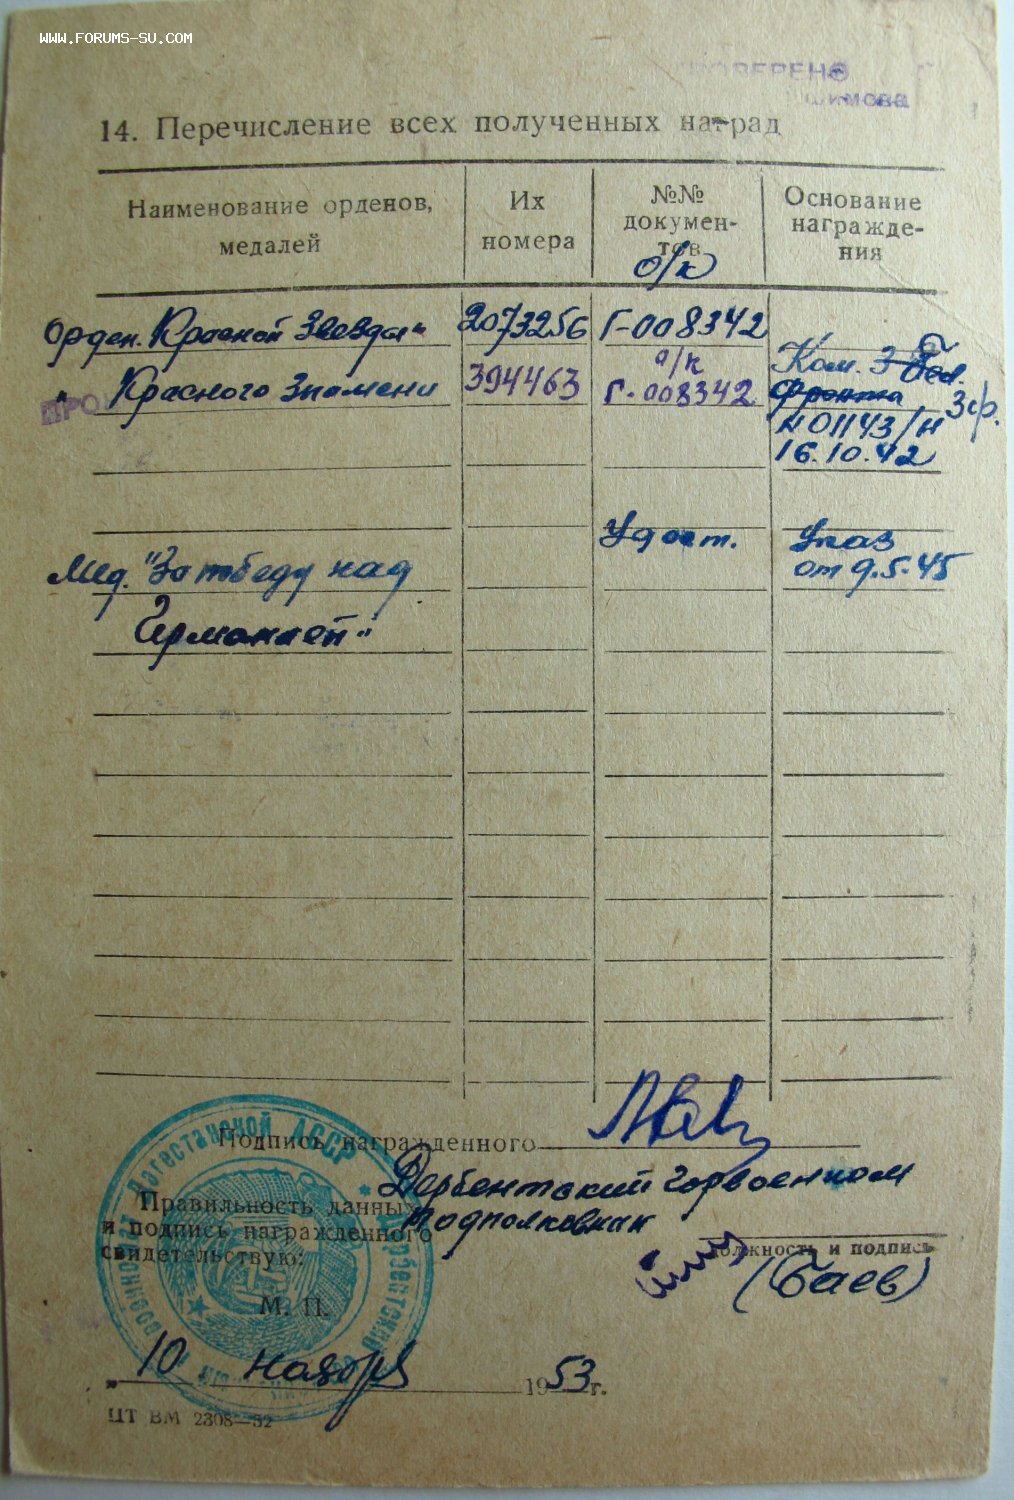 WWW.FORUMS-SU.COM
ПРОВЕРЕНО
14. Перечисление всех полученных наград
Наименование орденов, медалей
Их номера
№№ докумен-
тов
о/к
Основание
награжде-
ния
Орден „Красной Звезды" 2073256 Г-008342
" Красного Знамени 394463 о/к Г-008342
Ком. З
фронта Зф.
№ 01143/н
16.10.42
Мед. "За победу над
Германией"
Удост.
Указ
от 9.5.45
Подпись награжденного
Дербентский Горвоенком
подполковник
Правильность данных
и подпись награжденного
свидетельствую:
должность и подпись
(Баев)
М. П.
„10 ноября 1953 г.
ЦТ ВМ 2308—52
Дагестанской АССР